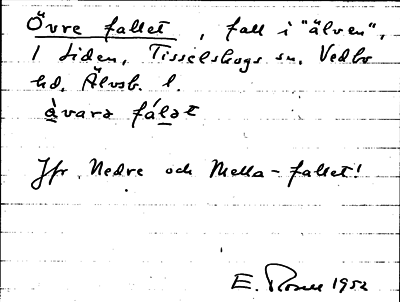 Övre fallet, fall i "älven",
I Liden, Tisselskogs sn. Vedbo
hd. Älvsb. l.
åvarə fálət
Jfr Nedre och Mella-fallet!
E. Rosell 1952